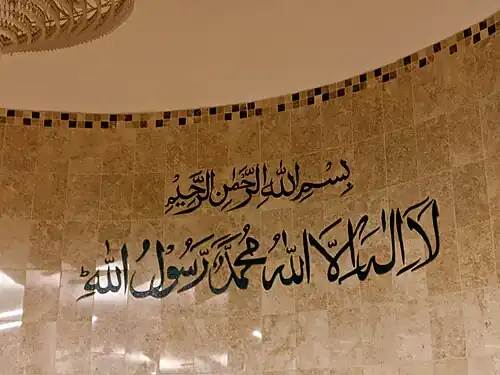 بِسْمِ اللهِ الرَّحْمٰنِ الرَّحِيْمِ
لَا اِلٰهَ اِلَّا اللهُ مُحَمَّدٌ رَّسُوْلُ اللهِ